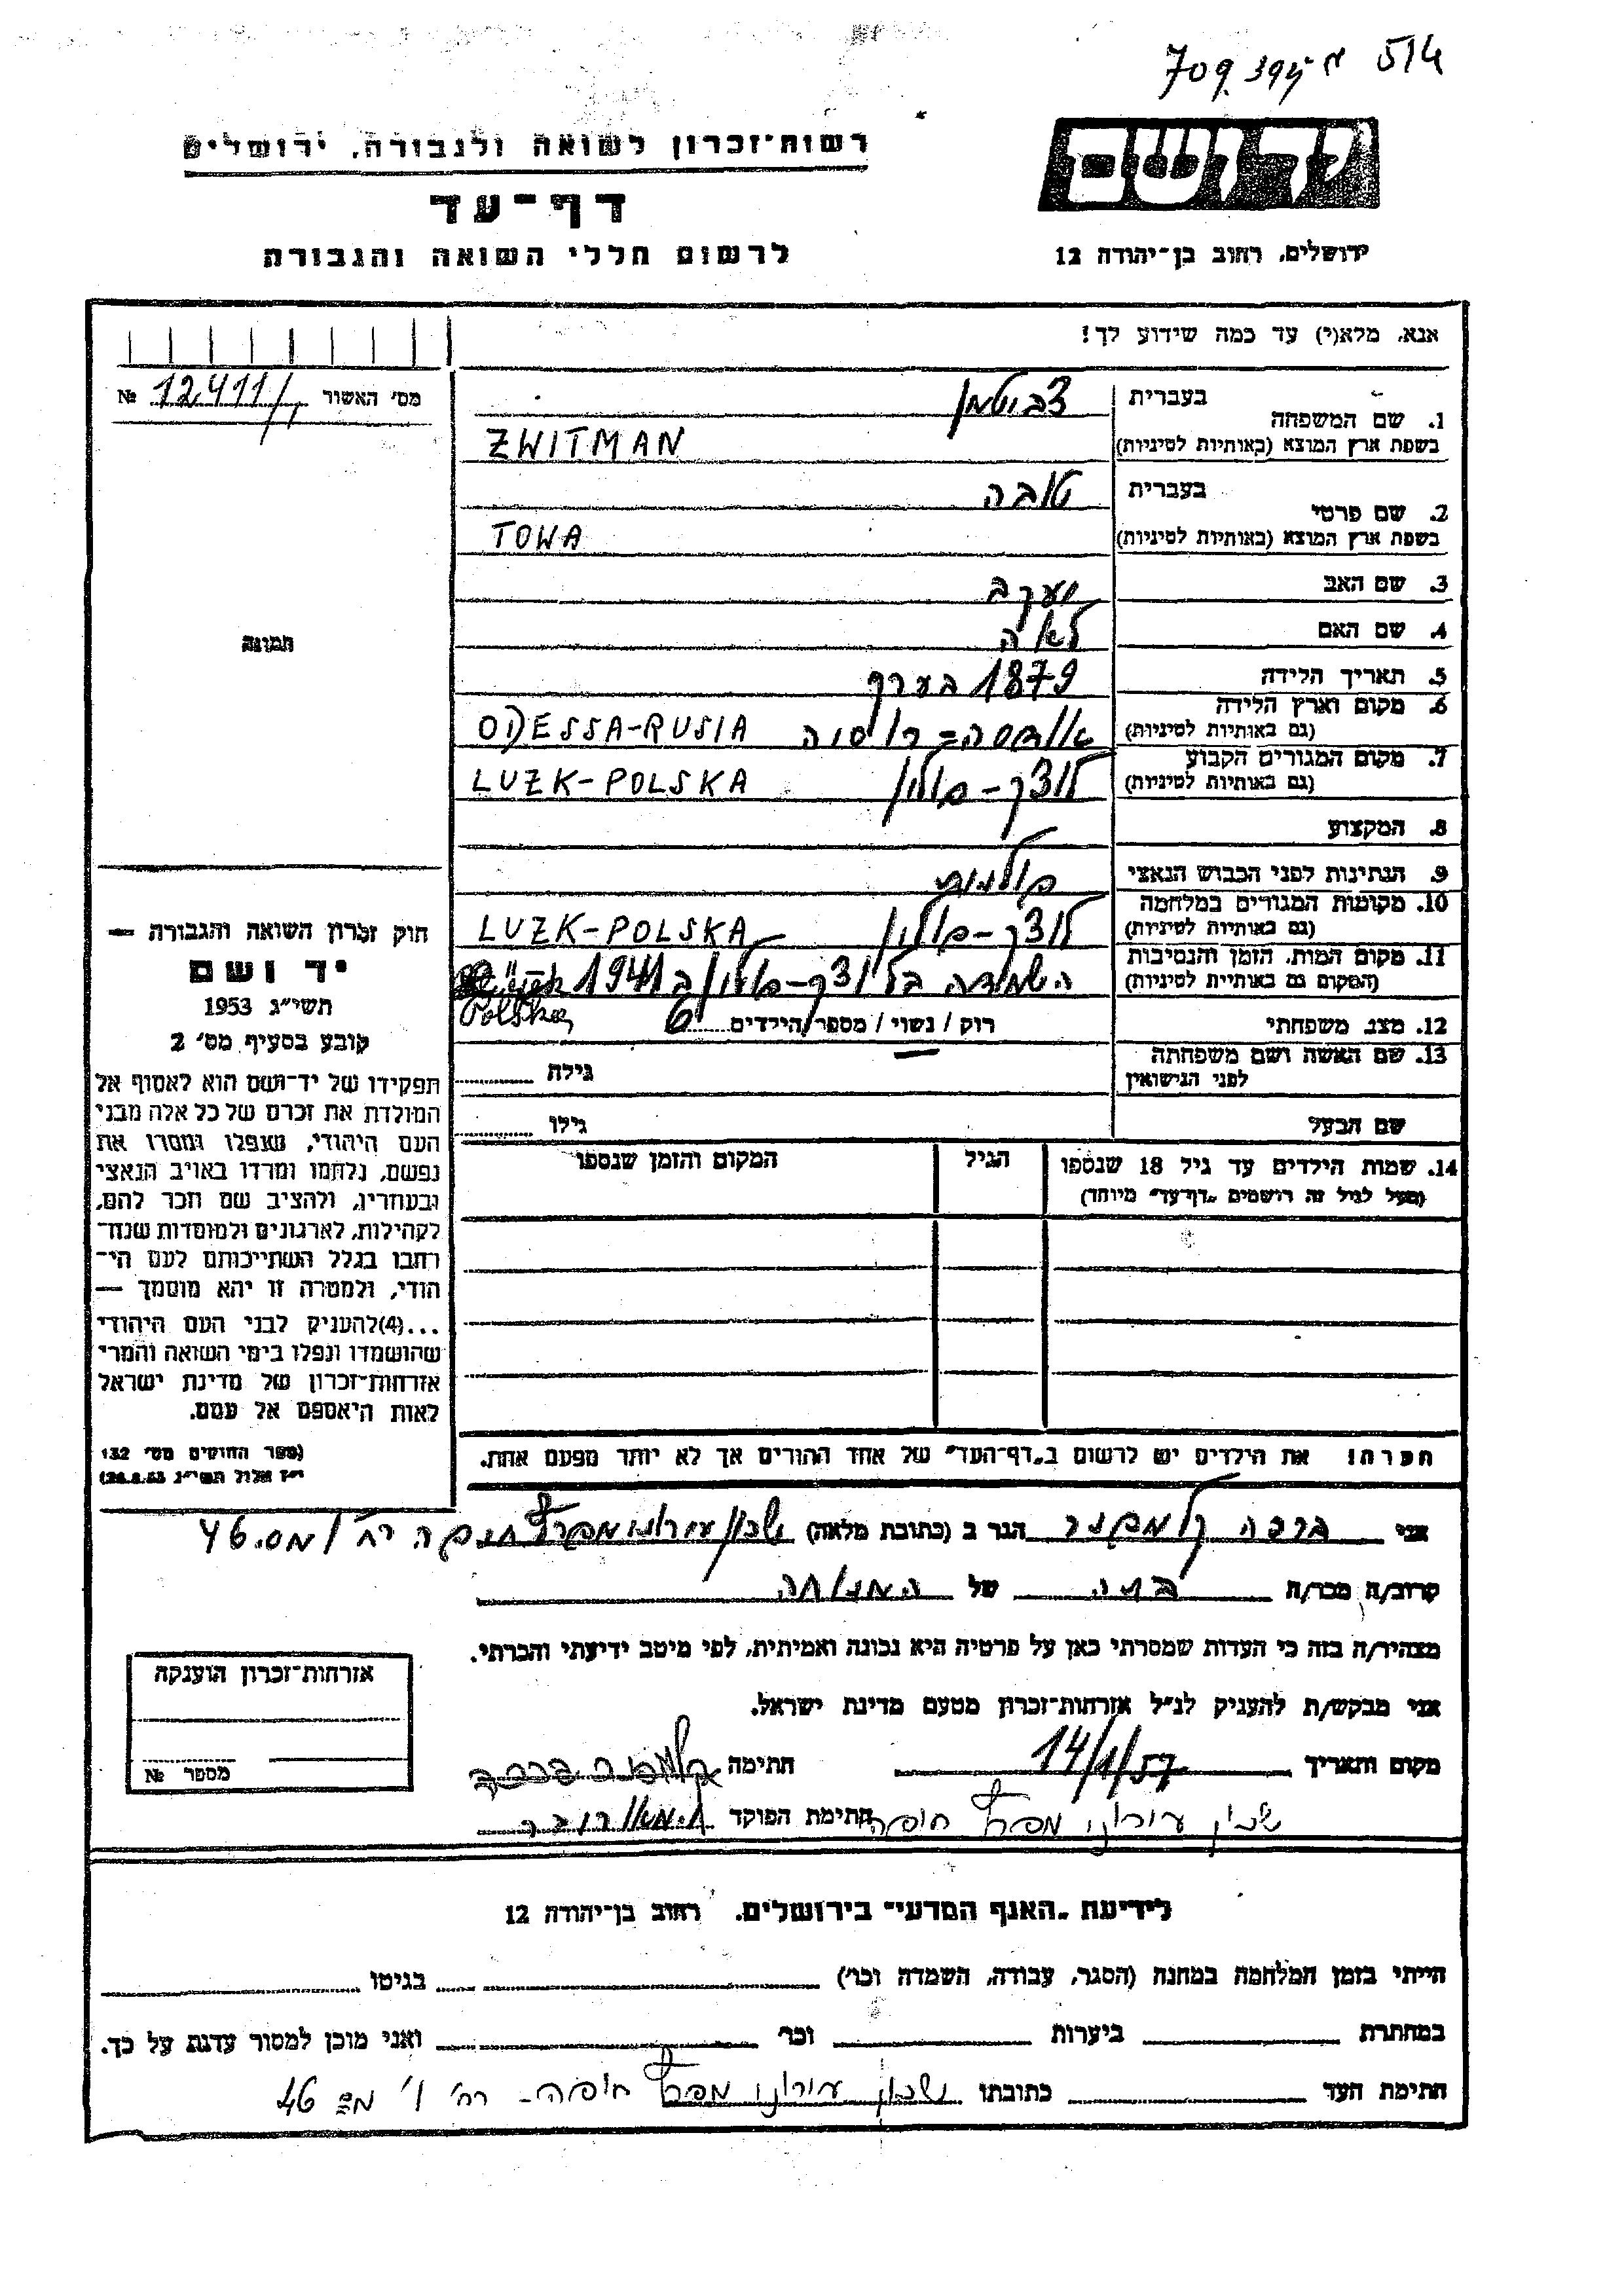 514
709
רשות־זכרון לשואה ולגבורה, ירושלים
יד ושם
דף־עד
לרשום חללי השואה והגבורה
ירושלים, רחוב בן־יהודה 12
אנא, מלא(י) עד כמה שידוע לך!
מס׳ האשור 12411/ №
1. שם המשפחה
בעברית צביטמן
בשפת ארץ המוצא (באותיות לטיניות) ZWITMAN
2. שם פרטי
בעברית טובה
בשפת ארץ המוצא (באותיות לטיניות) TOWA
3. שם האב יעקב
4. שם האם לאה
תמונה
5. תאריך הלידה 1879 בערך
6. מקום וארץ הלידה
(גם באותיות לטיניות) אודסה = רוסיה ODESSA-RUSIA
7. מקום המגורים הקבוע
(גם באותיות לטיניות) לוצק - פולין LUZK-POLSKA
8. המקצוע
9. הנתינות לפני הכבוש הנאצי פולנית
10. מקומות המגורים במלחמה
(גם באותיות לטיניות) לוצק - פולין LUZK-POLSKA
11. מקום המות, הזמן והנסיבות
(המקום גם באותיות לטיניות) הושמדה בלוצק - פולין ב 1941
Polska
12. מצב משפחתי רוק / נשוי / מספר הילדים 6
13. שם האשה ושם משפחתה
לפני הנישואין גילה
שם הבעל גילו
14. שמות הילדים עד גיל 18 שנספו
(מעל לגיל זה רושמים „דף־עד״ מיוחד)
הגיל
המקום והזמן שנספו
חוק זכרון השואה והגבורה —
יד ושם
תשי״ג 1953
קובע בסעיף מס׳ 2
תפקידו של יד־ושם הוא לאסוף אל
המולדת את זכרם של כל אלה מבני
העם היהודי, שנפלו ומסרו את
נפשם, נלחמו ומרדו באויב הנאצי
ובעוזריו, ולהציב שם וזכר להם,
לקהילות, לארגונים ולמוסדות שנח־
רבו בגלל השתייכותם לעם הי־
הודי, ולמטרה זו יהא מוסמך —
...(4)להעניק לבני העם היהודי
שהושמדו ונפלו בימי השואה והמרי
אזרחות־זכרון של מדינת ישראל
לאות היאספם אל עמם.
(ספר החוקים מס׳ 132
י״ז אלול תשי״ג 28.8.53)
הערה! את הילדים יש לרשום ב„דף־העד״ של אחד ההורים אך לא יותר מפעם אחת.
אני ברכה קלמפנר הגר ב (כתובת מלאה) שכון עירוני מפרץ חיפה רח׳ ו מס. 46
קרוב/ה מכר/ה בתה של המנוחה
מצהיר/ה בזה כי העדות שמסרתי כאן על פרטיה היא נכונה ואמיתית, לפי מיטב ידיעתי והכרתי.
אני מבקש/ת להעניק לנ״ל אזרחות־זכרון מטעם מדינת ישראל.
מקום ותאריך 14/1/57 חתימה
שכון עירוני מפרץ חיפה חתימת הפוקד
אזרחות־זכרון הוענקה
מספר №
לידיעת „האגף המדעי״ בירושלים, רחוב בן־יהודה 12
הייתי בזמן המלחמה במחנה (הסגר, עבודה, השמדה וכר׳) בגיטו
במחתרת ביערות וכר׳ ואני מוכן למסור עדות על כך.
חתימת העד כתובתו שכון עירוני מפרץ חיפה - רח׳ ו׳ מס 46